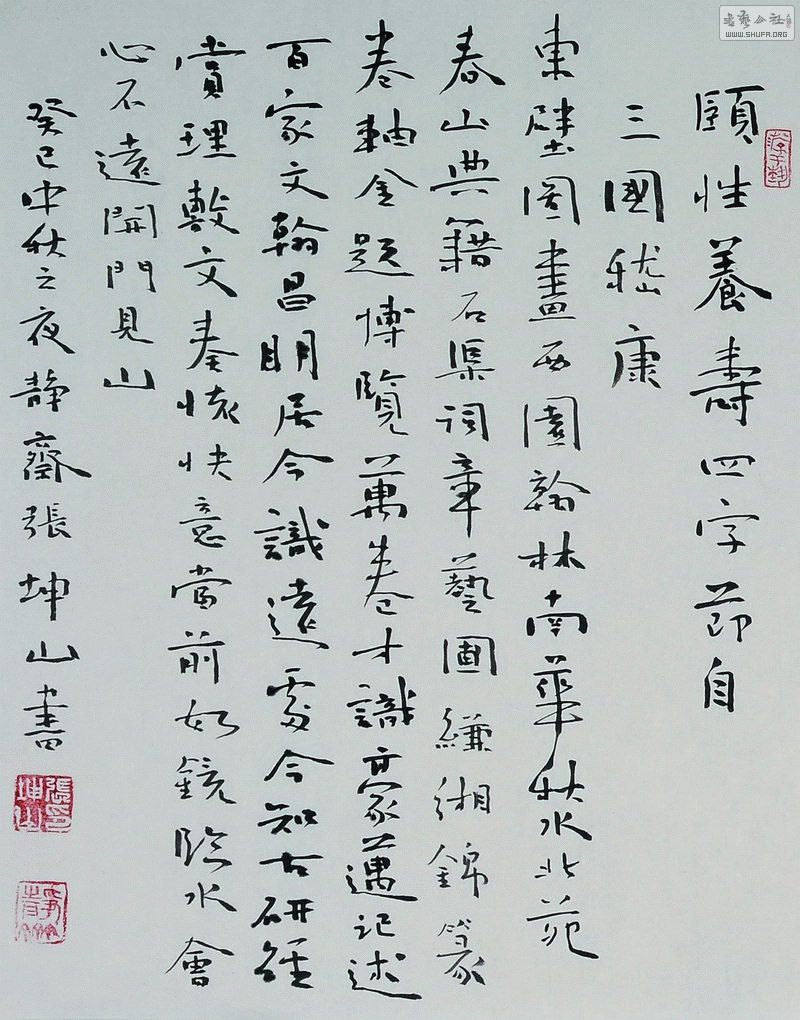 頤性養壽四字節自
三國嵇康
東壁圖畫西園翰林南華秋水北苑
春山典籍石渠詞章藝圃縑緗錦篆
卷軸金題博覽萬卷才識豪邁記述
百家文翰昌明居今識遠處今知古研經
賞理敷文奏懷快意當前如鏡臨水會
心不遠開門見山
癸巳中秋之夜靜齋張坤山書
張坤山印
游于藝
WWW.SHUFA.ORG